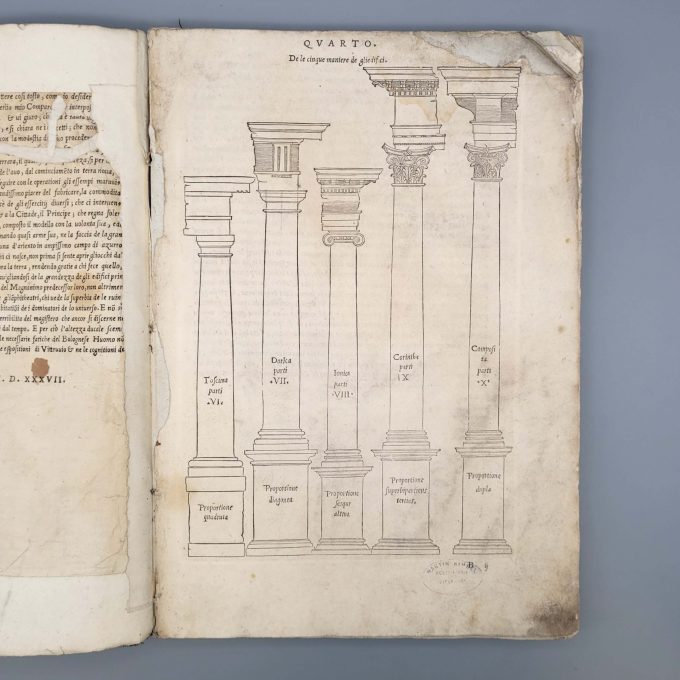 ttere così tosto, com
serbò mio Compar
& vi giuro; ch
, e si chiara ne
con la modestia
errara, il qual
de l'auo, dal cominciamēto in terra noua,
eguire con le operationi gli essempi
andissimo piacer del fabricare, la commodita
è de gli esserciti diuersi; che ci interuen
& a la Cittade, il Principe; che regna
composto il modello con la volonta sua, ed
mando quasi arme sua, ne la faccia de la gran
una d'oriento in ampissimo campo di azurro
ci nasce, non prima si sente aprir gliocchi dal
na la terra, rendendo gratie a chi fece quello,
igliandosi de la grandezza de gli edifici prin
del Magnanimo predecessor loro, non altrimen
gliamphiteatri, chi uede la superbia de le ruin
habitatiōi de i dominatori de lo uniuerso. E nō
terribilita del magistero che ancor si discerne ne
dal tempo. E per ciò l'altezza ducale
le necessarie fatiche del Bolognese Huomo nō
e espositioni di Vitruuio & ne le cognitioni de
. D. XXXVII.
QVARTO.
De le cinque maniere de gliedifici.
Toscana
parti
.VI.
Dorica
parti
.VII.
Ionica
parti
.VIII.
Corinthia
parti
IX
Composi
ta
parti
.X.
Proportione
quadrata
Proportione
diagonea
Proportione
sesqui
altera
Proportione
superbipartiens
tertias.
Proportione
dupla
B